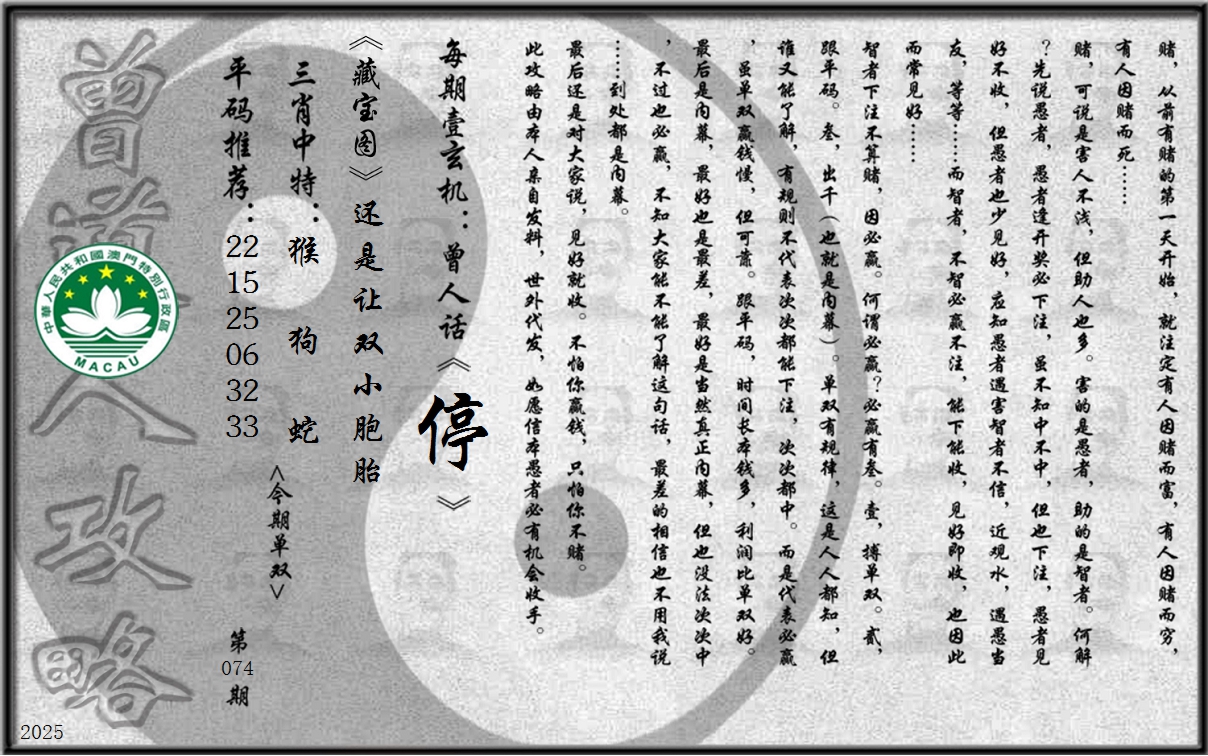 赌，从前有赌的第一天开始，就注定有人因赌而富，有人因赌而穷，
有人因赌而死……
赌，可说是害人不浅，但助人也多。害的是愚者，助的是智者。何解
？先说愚者，愚者逢开奖必下注，虽不知中不中，但也下注，愚者见
好不收，但愚者也少见好，应知愚者遇害智者不信，近观水，遇愚当
友，等等……而智者，不智必赢不注，能下能收，见好即收，也因此
而常见好……
智者下注不算赌，因必赢。何谓必赢？必赢有叁。壹，搏单双。贰，
跟平码。叁，出千（也就是内幕）。单双有规律，这是人人都知，但
谁又能了解，有规则不代表次次都能下注，次次都中。而是代表必赢
，虽单双赢钱慢，但可靠。跟平码，时间长本钱多，利润比单双好。
最后是内幕，最好也是最差，最好是当然真正内幕，但也没法次次中
，不过也必赢，不知大家能不能了解这句话，最差的相信也不用我说
……到处都是内幕。
最后还是对大家说，见好就收。不怕你赢钱，只怕你不赌。
此攻略由本人亲自发料，世外代发，如愿信本愚者必有机会收手。
每期壹玄机：曾人话《停》
《藏宝图》还是让双小胞胎
三肖中特：猴 狗 蛇
<今期单双>
平码推荐：22 15 25 06 32 33
第074期
曾道人攻略
中華人民共和國澳門特別行政區
MACAU
2025